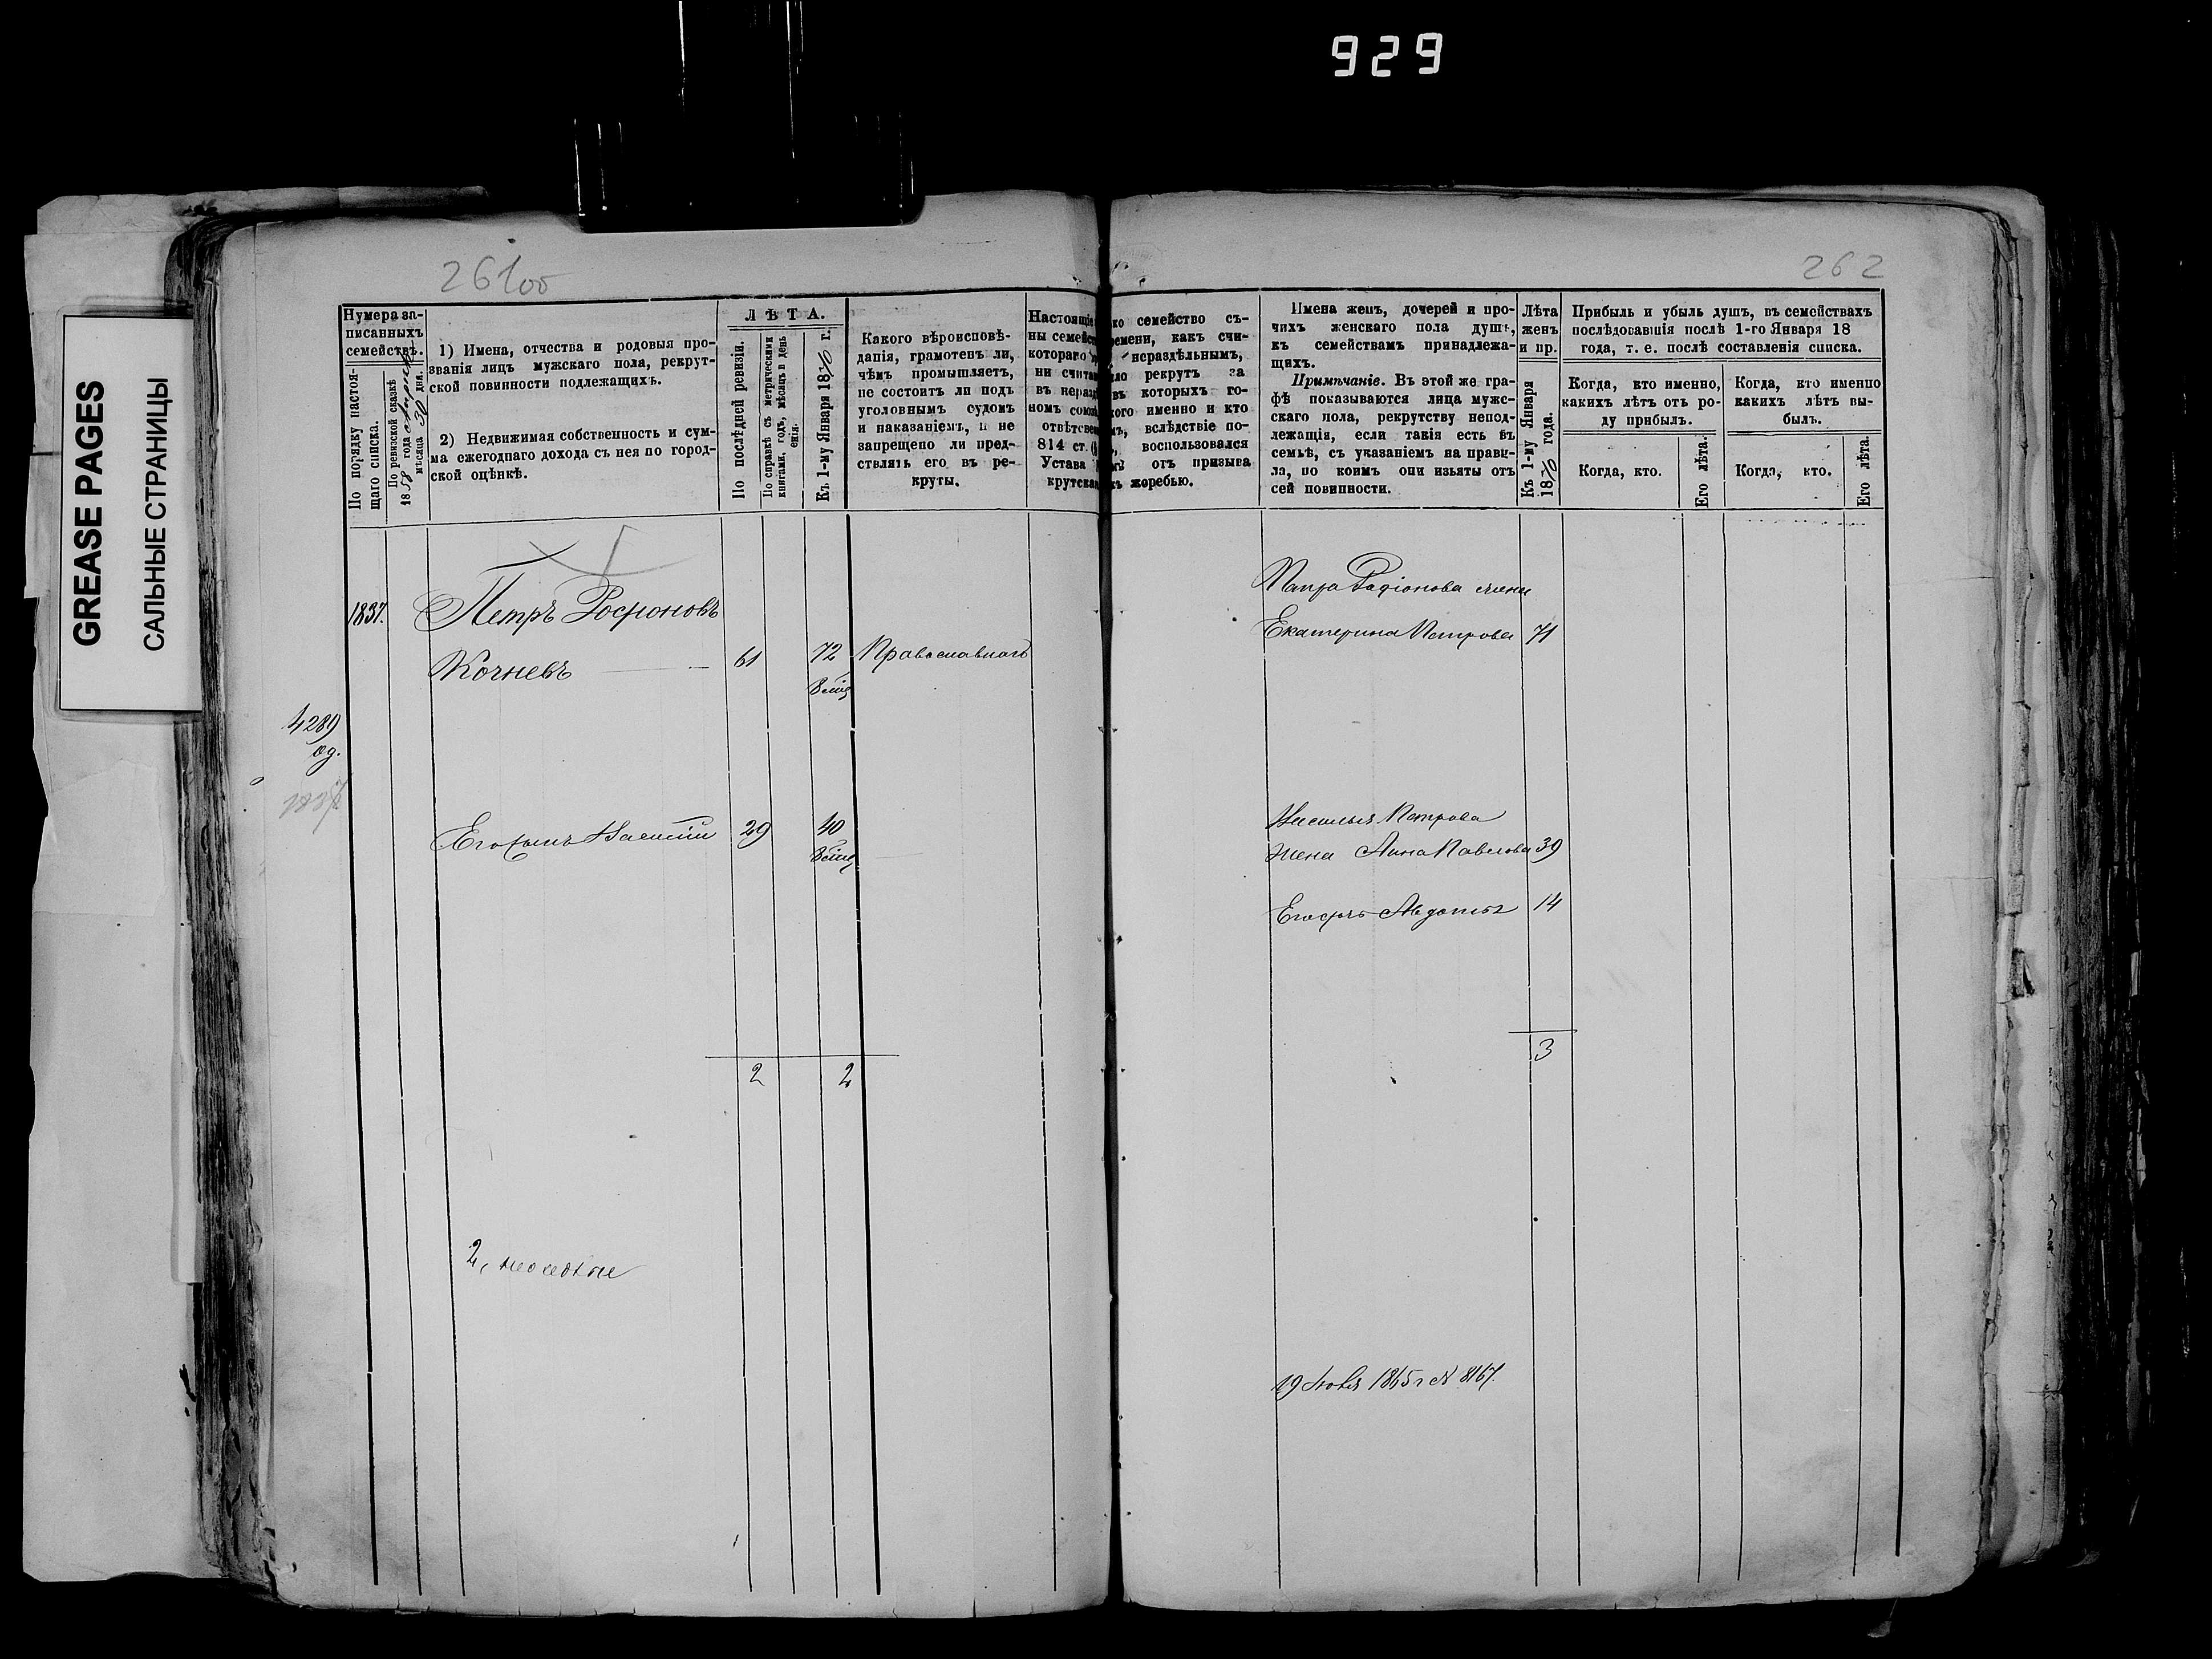 929
GREASE PAGES
САЛЬНЫЕ СТРАНИЦЫ
261об
262
Нумера за-
писанныхъ
семействъ.
По порядку настоя-
щаго списка.
По ревизской сказкѣ
1858 года
мѣсяца 30 дня.
1) Имена, отчества и родовыя про-
званія лицъ мужскаго пола, рекрут-
ской повинности подлежащихъ.
2) Недвижимая собственность и сум-
ма ежегоднаго дохода съ нея по город-
ской оцѣнкѣ.
ЛѢТА.
По послѣдней ревизіи.
По справкѣ съ метрическими
книгами, годъ, мѣсяцъ и день
Къ 1-му Января 1870 г.
Какого вѣроисповѣ-
данія, грамотенъ ли,
чѣмъ промышляетъ,
не состоитъ ли подъ
уголовнымъ судомъ
и наказаніемъ, и не
запрещено ли пред-
ствлять его въ ре-
круты.
Настоящі
ны семейс
котораго
ни счита
въ нераз
номъ союз
отвѣтстве
814 ст.
Устава
крутска
семейство съ-
ремени, какъ счи-
нераздѣльнымъ,
ло рекрутъ за
въ которыхъ го-
кого именно и кто
вслѣдствіе по-
воспользовался
отъ призыва
жоребью.
Имена женъ, дочерей и про-
чихъ женскаго пола душъ,
къ семействамъ принадлежа-
щихъ.
Примѣчаніе. Въ этой же гра-
фѣ показываются лица муж-
скаго пола, рекрутству непод-
лежащія, если такія есть въ
семьѣ, съ указаніемъ на прави-
ла, по коимъ они изъяты отъ
сей повинности.
Лѣта
женъ
и пр.
Къ 1-му Января
1870 года.
Прибыль и убыль душъ, въ семействахъ
послѣдовавшія послѣ 1-го Января 18
года, т. е. послѣ составленія списка.
Когда, кто именно,
какихъ лѣтъ отъ ро-
ду прибылъ.
Когда, кто именно
какихъ лѣтъ вы-
былъ.
Когда, кто.
Его лѣта.
Когда, кто.
Его лѣта.
1837.
Петръ Родіоновъ
Кочневъ 61 72 Православнаго
4289
Его сынъ Василій 29 40
2 2
2,
Петра Радіонова жена
Екатерина Петрова 71
Василья Петрова
жена Анна Павлова 39
Его дочь Авдотья 14
3
19 1865 г № 8167.